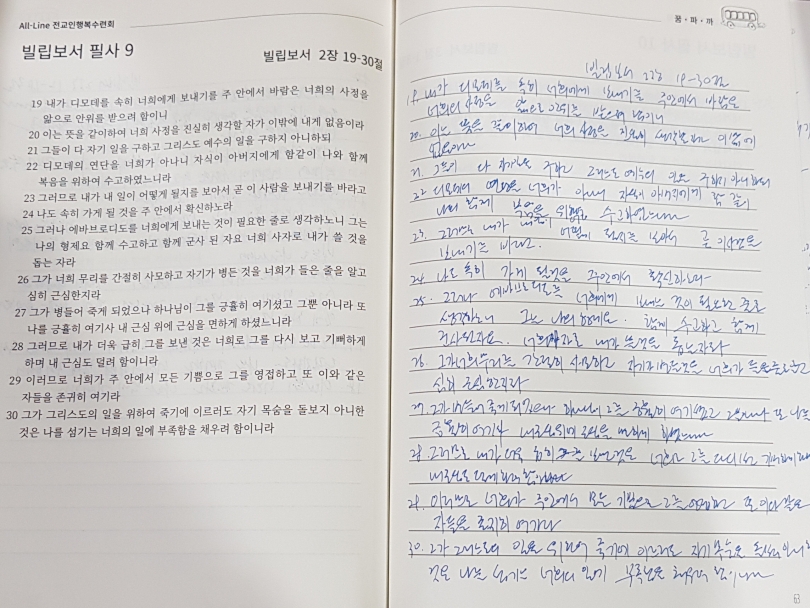 All-Line 전교인행복수련회
빌립보서 필사 9
빌립보서 2장 19-30절
19 내가 디모데를 속히 너희에게 보내기를 주 안에서 바람은 너희의 사정을
앎으로 안위를 받으려 함이니
20 이는 뜻을 같이하여 너희 사정을 진실히 생각할 자가 이밖에 내게 없음이라
21 그들이 다 자기 일을 구하고 그리스도 예수의 일을 구하지 아니하되
22 디모데의 연단을 너희가 아나니 자식이 아버지에게 함같이 나와 함께
복음을 위하여 수고하였느니라
23 그러므로 내가 내 일이 어떻게 될지를 보아서 곧 이 사람을 보내기를 바라고
24 나도 속히 가게 될 것을 주 안에서 확신하노라
25 그러나 에바브로디도를 너희에게 보내는 것이 필요한 줄로 생각하노니 그는
나의 형제요 함께 수고하고 함께 군사 된 자요 너희 사자로 내가 쓸 것을
돕는 자라
26 그가 너희 무리를 간절히 사모하고 자기가 병든 것을 너희가 들은 줄을 알고
심히 근심한지라
27 그가 병들어 죽게 되었으나 하나님이 그를 긍휼히 여기셨고 그뿐 아니라 또
나를 긍휼히 여기사 내 근심 위에 근심을 면하게 하셨느니라
28 그러므로 내가 더욱 급히 그를 보낸 것은 너희로 그를 다시 보고 기뻐하게
하며 내 근심도 덜려 함이니라
29 이러므로 너희가 주 안에서 모든 기쁨으로 그를 영접하고 또 이와 같은
자들을 존귀히 여기라
30 그가 그리스도의 일을 위하여 죽기에 이르러도 자기 목숨을 돌보지 아니한
것은 나를 섬기는 너희의 일에 부족함을 채우려 함이니라
꿈·파·까
빌립보서 2장 19-30절
19. 내가 디모데를 속히 너희에게 보내기를 주안에서 바람은
너희의 사정을 앎으로 안위를 받으려 함이니
20. 이는 뜻을 같이하여 너희 사정을 진실히 생각할 자가 이밖에
없음이라
21. 그들이 다 자기일을 구하고 그리스도 예수의 일을 구하지 아니하되
22 디모데의 연단을 너희가 아나니 자식이 아버지에게 함 같이
나와 함께 복음을 위하여 수고하였느니라
23. 그러므로 내가 어떻게 될지를 보아서 곧 이사람을
보내기를 바라고.
24. 나도 속히 가게 될것을 주안에서 확신하노라
25. 그러나 에바브로디도를 너희에게 보내는 것이 필요한 줄로
생각하노니 그는 나의 형제요. 함께 수고하고 함께
군사된자요. 너희사자로 내가 쓸것을 돕는자라
26. 그가너희무리를 간절히 사모하고 자기가 병든것을 너희가
심히 근심한지라
27. 그가 병들어 죽게되었으나 하나님이 그를 긍휼히 여기셨고
긍휼히 여기사 면하게 하셨느니라
28. 그러므로 내가 더욱 급히 보낸것은 너희로 그를 다시보고
29. 이러므로 너희가 주안에서 모든 기쁨으로 그를 영접하고 또 이와 같은
자들을 존귀히 여기라
30. 그가 그리스도의 일을 위하여 죽기에 이르러도 자기 목숨을
것은 나를 섬기는 너희의 일에 부족함을 채우려 함이니라
63